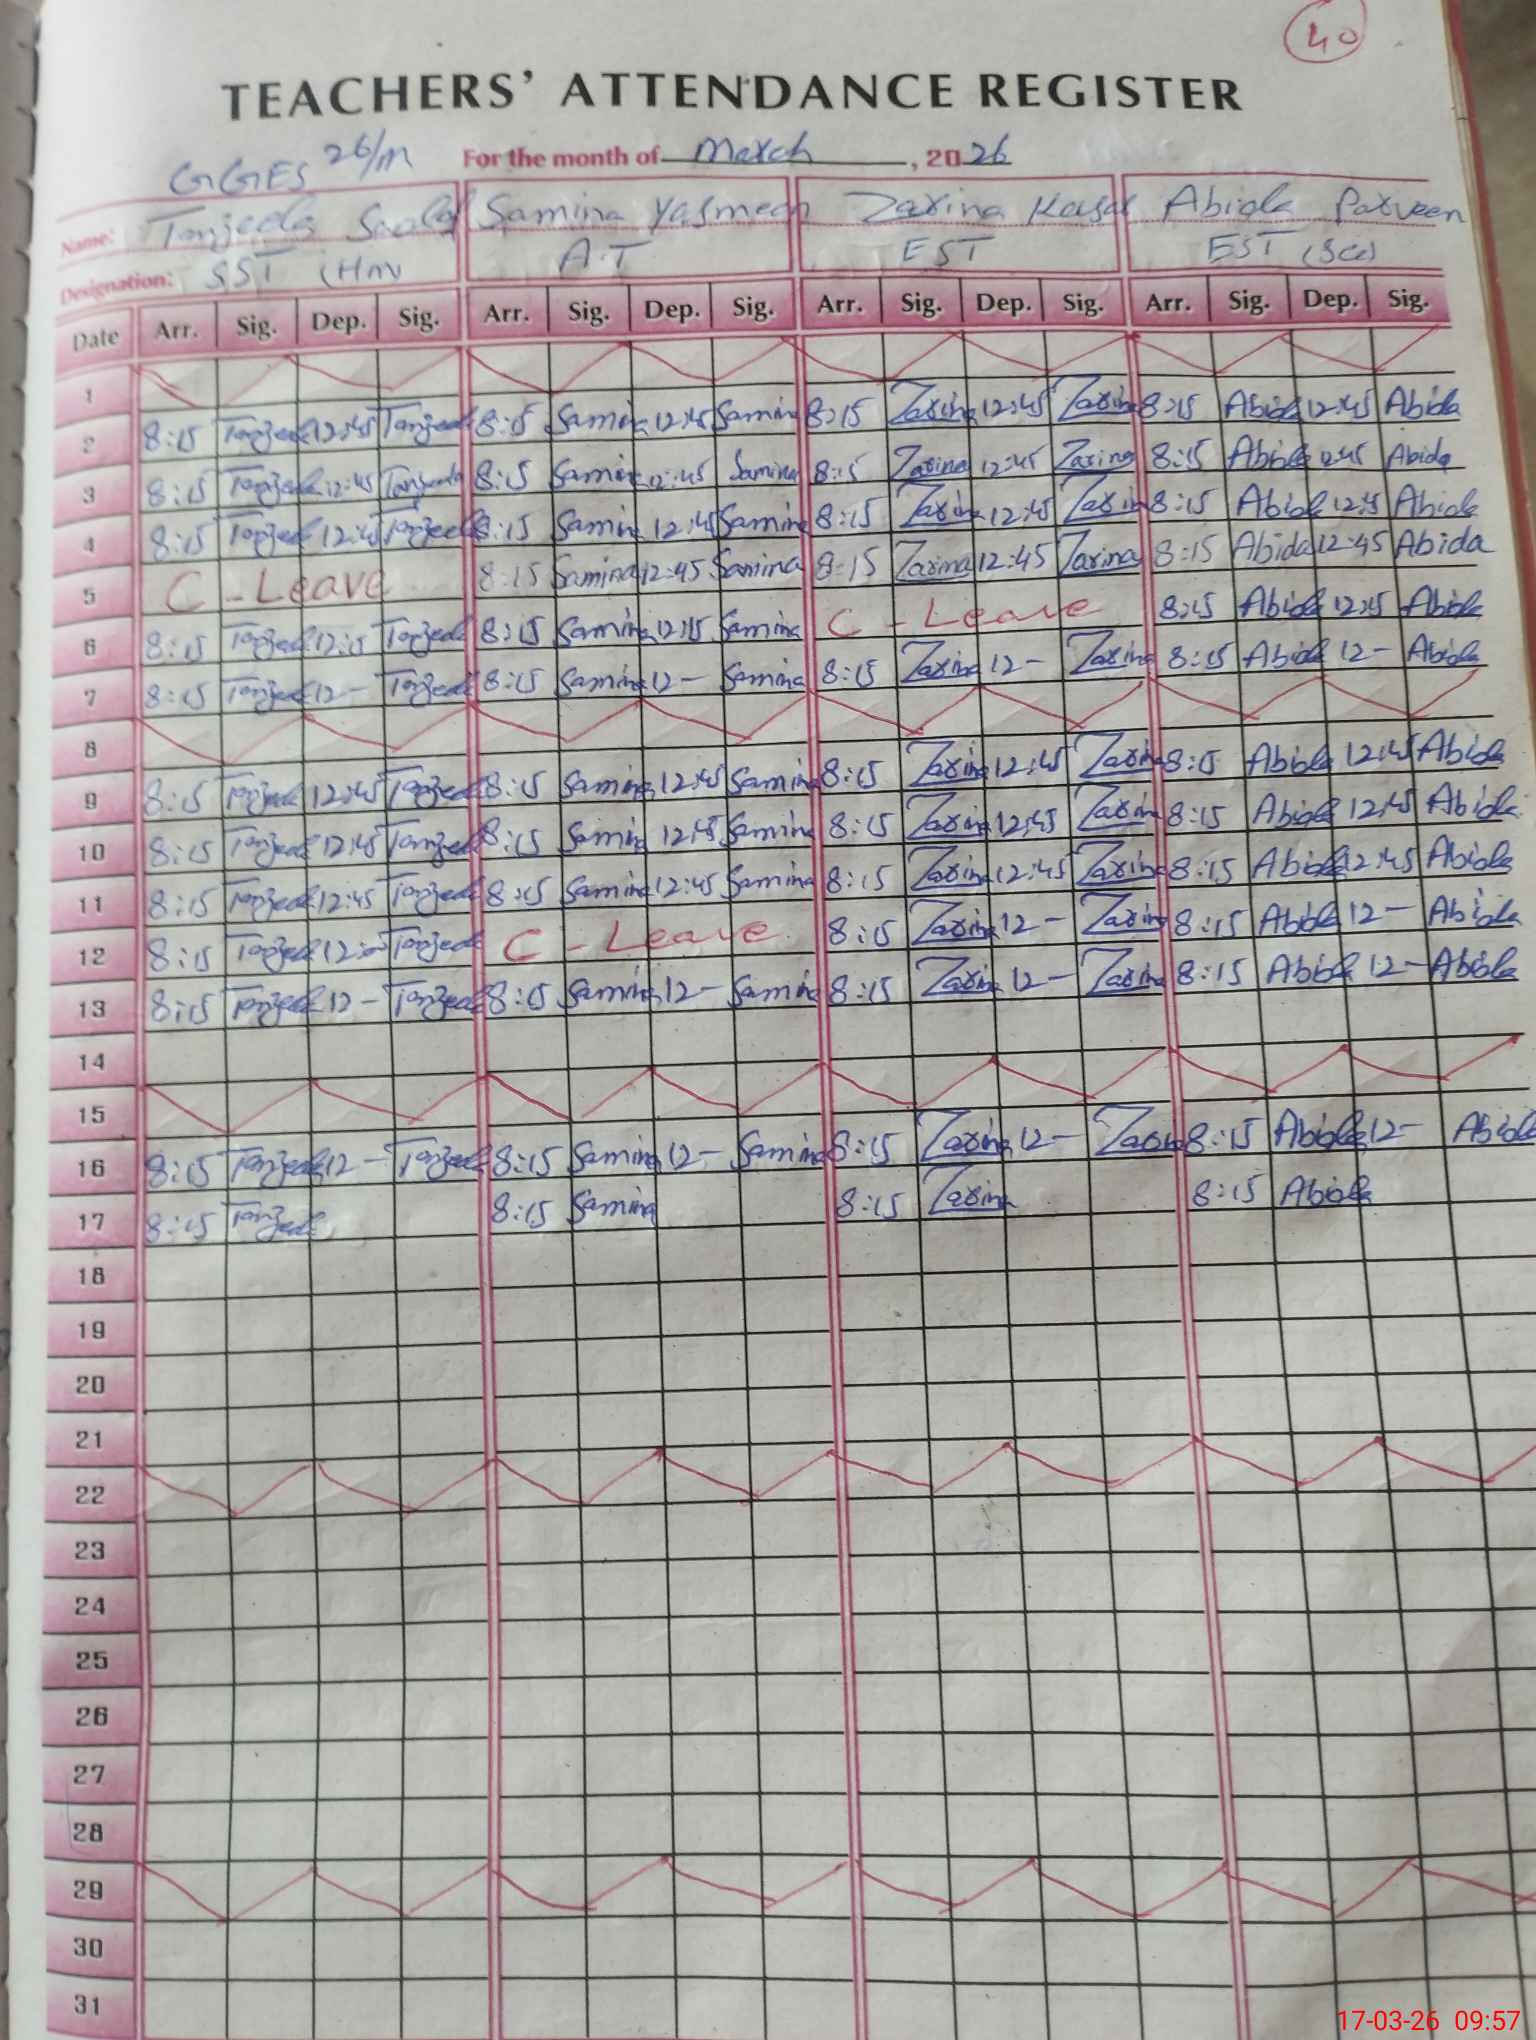 40
TEACHERS' ATTENDANCE REGISTER
GGES 26/M For the month of March, 2026
Name: Tanzeela Samina Yasmeen Zarina Kousar Abida Parveen
Designation: SST (Hm A.T EST EST (Sce)
Date Arr. Sig. Dep. Sig. Arr. Sig. Dep. Sig. Arr. Sig. Dep. Sig. Arr. Sig. Dep. Sig.
1
2 8:15 Tanzeela 12:45 Tanzeela 8:15 Samina 12:45 Samina 8:15 Zarina 12:45 Zarina 8:15 Abida 12:45 Abida
3 8:15 Tanzeela 12:45 Tanzeela 8:15 Samina 12:45 Samina 8:15 Zarina 12:45 Zarina 8:15 Abida 12:45 Abida
4 8:15 Tanzeela 12:45 Tanzeela 8:15 Samina 12:45 Samina 8:15 Zarina 12:45 Zarina 8:15 Abida 12:45 Abida
5 C - Leave 8:15 Samina 12:45 Samina 8:15 Zarina 12:45 Zarina 8:15 Abida 12:45 Abida
6 8:15 Tanzeela 12:15 Tanzeela 8:15 Samina 12:15 Samina C - Leave 8:15 Abida 12:15 Abida
7 8:15 Tanzeela 12- Tanzeela 8:15 Samina 12- Samina 8:15 Zarina 12- Zarina 8:15 Abida 12- Abida
8
9 8:15 Tanzeela 12:45 Tanzeela 8:15 Samina 12:45 Samina 8:15 Zarina 12:45 Zarina 8:15 Abida 12:45 Abida
10 8:15 Tanzeela 12:45 Tanzeela 8:15 Samina 12:45 Samina 8:15 Zarina 12:45 Zarina 8:15 Abida 12:45 Abida
11 8:15 Tanzeela 12:45 Tanzeela 8:15 Samina 12:45 Samina 8:15 Zarina 12:45 Zarina 8:15 Abida 12:45 Abida
12 8:15 Tanzeela Tanzeela C - Leave 8:15 Zarina 12- Zarina 8:15 Abida 12- Abida
13 8:15 Tanzeela 12- Tanzeela 8:15 Samina 12- Samina 8:15 Zarina 12- Zarina 8:15 Abida 12- Abida
14
15
16 8:15 Tanzeela 12- Tanzeela 8:15 Samina 12- Samina 8:15 Zarina 12- Zarina 8:15 Abida 12- Abida
17 8:15 Tanzeela 8:15 Samina 8:15 Zarina 8:15 Abida
18
19
20
21
22
23
24
25
26
27
28
29
30
31
17-03-26 09:57